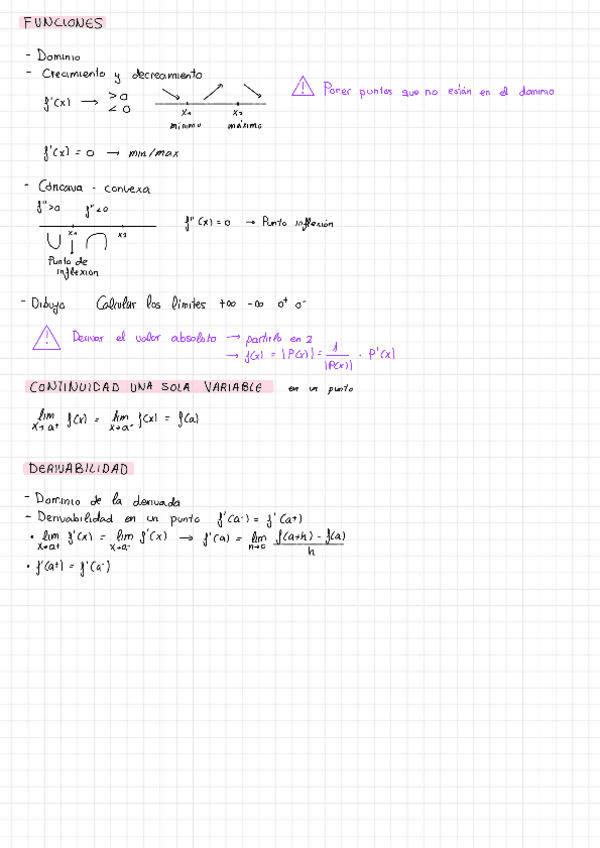 FUNCIONES
- Dominio
- Crecimiento y decrecimiento
⚠ Poner puntos que no están en el dominio
f'(x) → > 0
< 0
x₁ x₂
mínimo máximo
f'(x) = 0 → min/max
- Cóncava - convexa
f''>0 f''<0
x₁ x₂
f''(x) = 0 → Punto inflexión
Punto de
inflexión
- Dibujo Calcular los límites +∞ -∞ 0⁺ 0⁻
⚠ Derivar el valor absoluto → partirlo en 2
→ f(x) = |P(x)| = 1/|P(x)| · P'(x)
CONTINUIDAD UNA SOLA VARIABLE en un punto
lim x→a⁺ f(x) = lim x→a⁻ f(x) = f(a)
DERIVABILIDAD
- Dominio de la derivada
- Derivabilidad en un punto f'(a⁻) = f'(a⁺)
• lim x→a⁺ f'(x) = lim x→a⁻ f'(x) → f'(a) = lim h→0 (f(a+h) - f(a))/h
• f'(a⁺) = f'(a⁻)